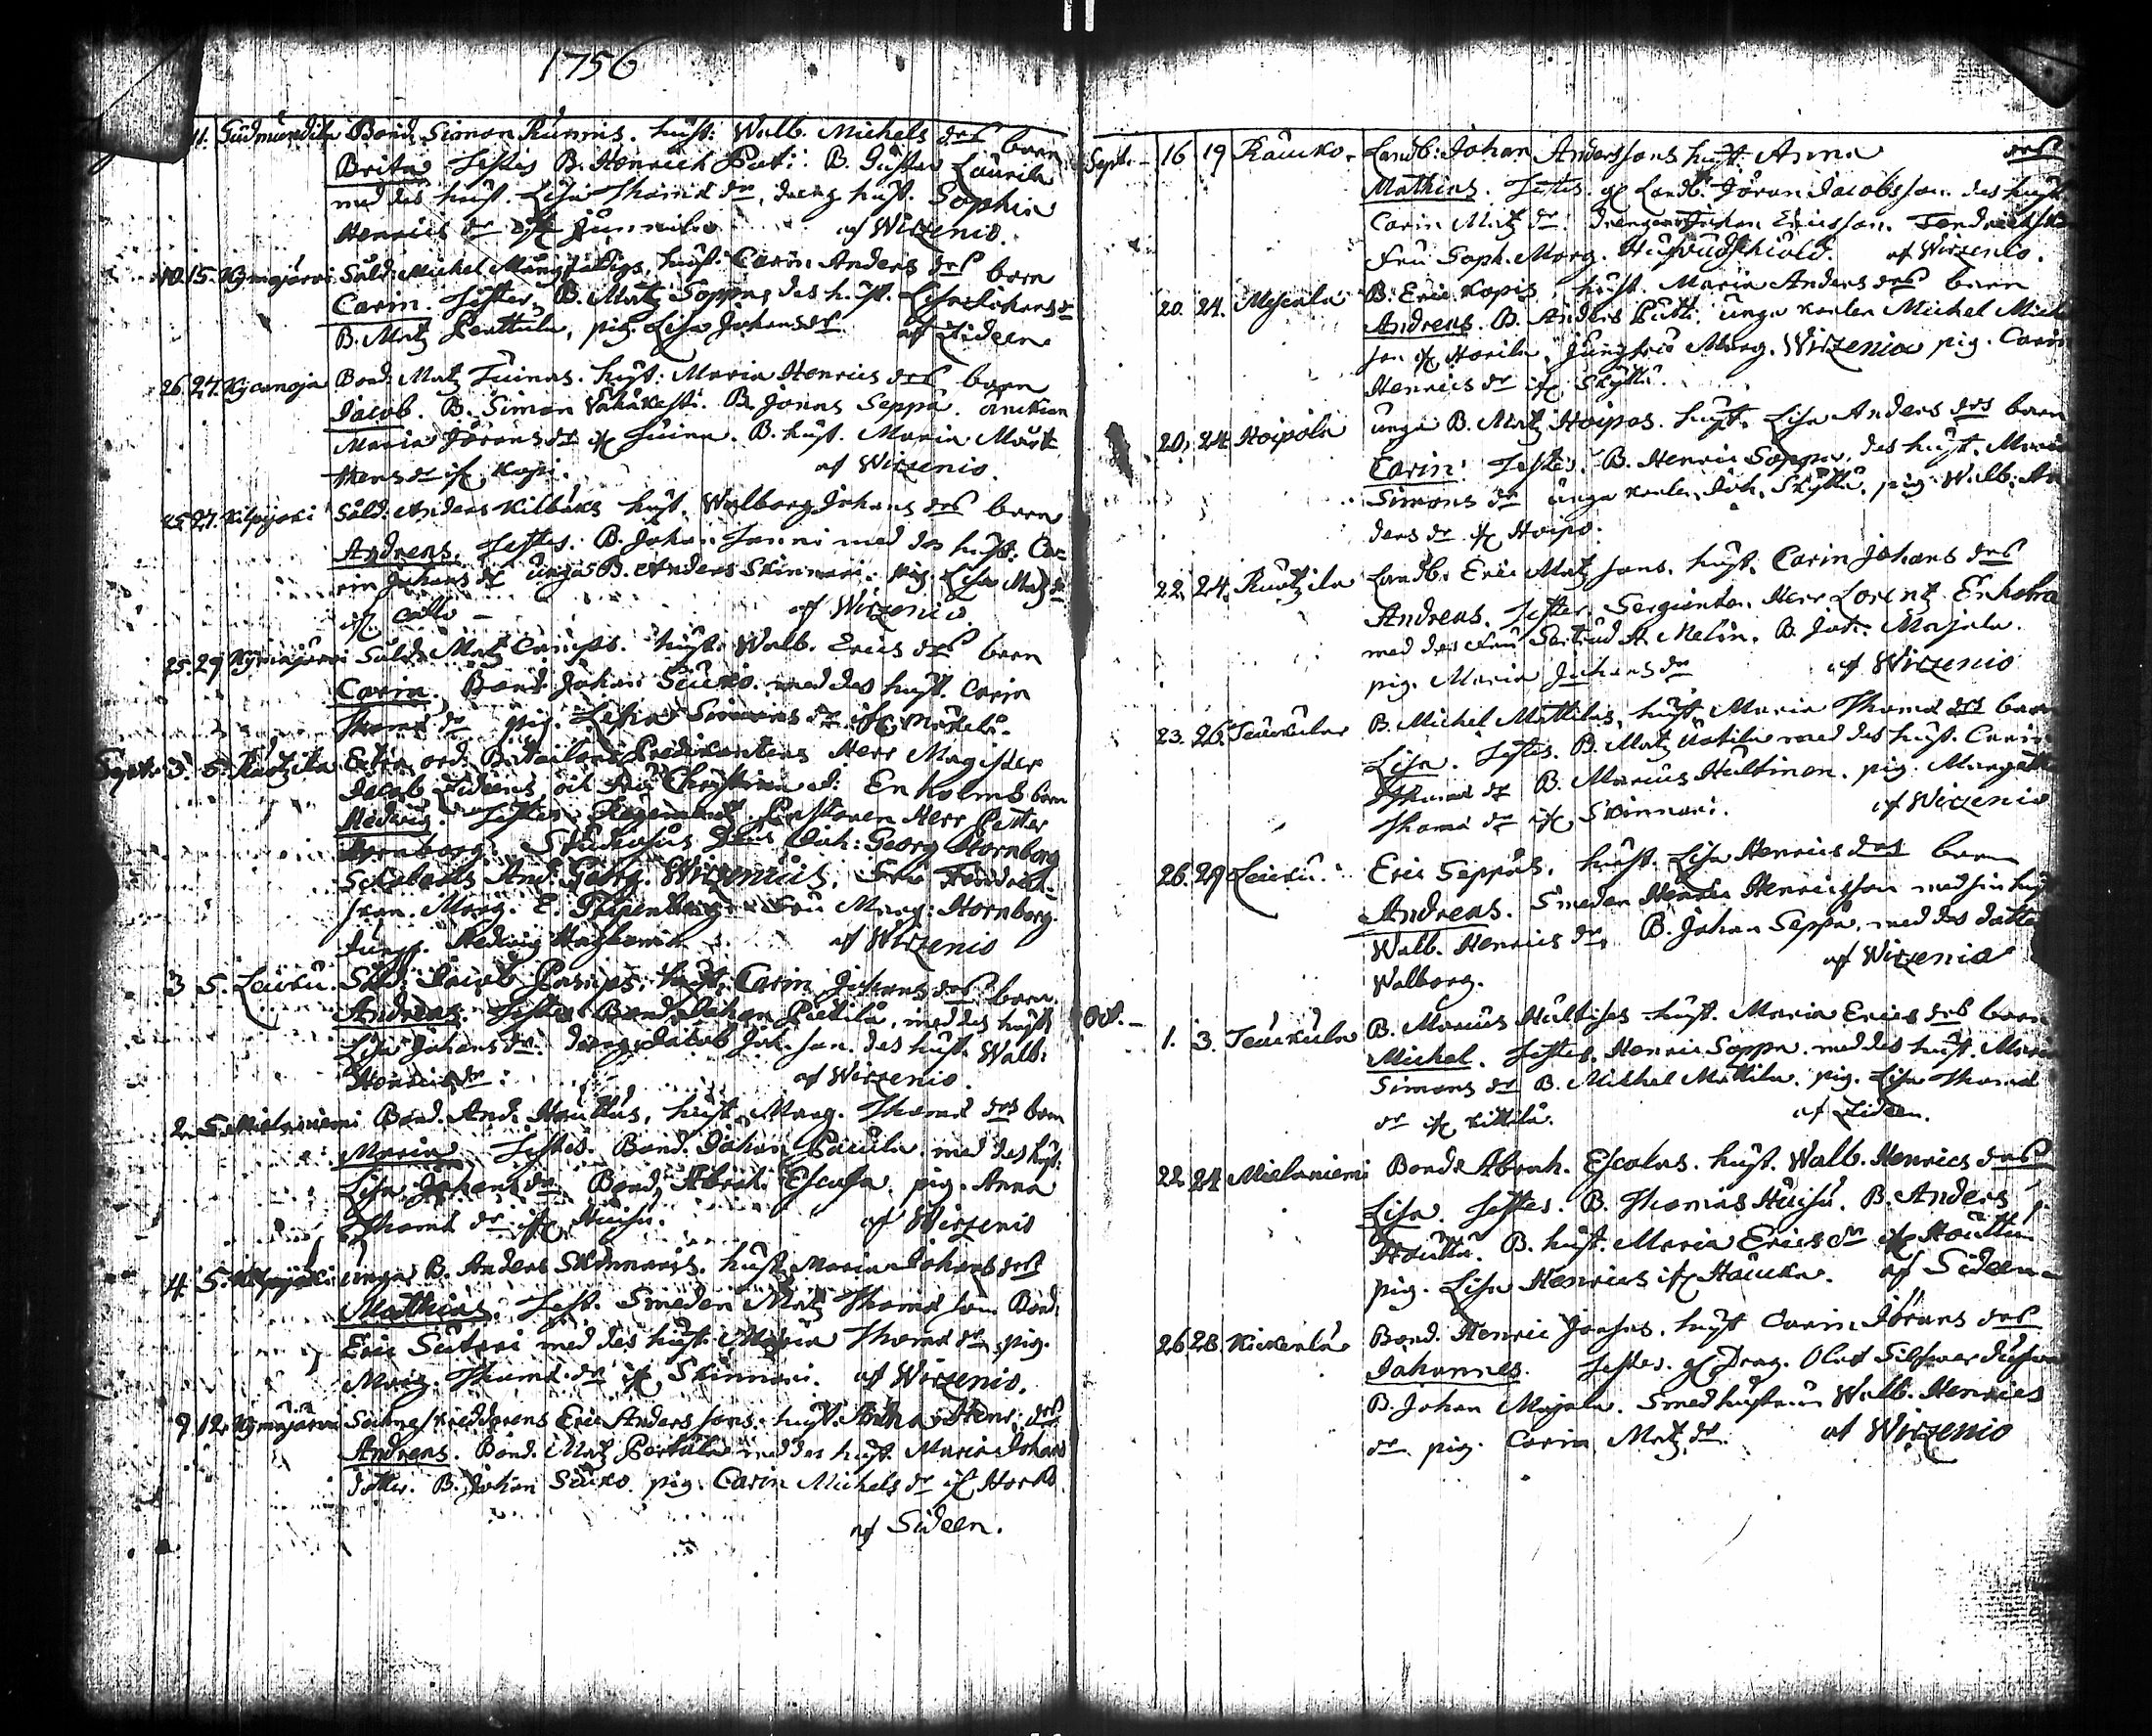 1756
11. Gudmundila Bond. Simon Runnis. hust: Walb. Michels drs barn
Brita Testes B. Henrich Pat: B. Gustav Laurila
med des hust. Lisa Thomæ dr, dreng hust. Sophia
Henrics dr af Wizenio.
10. 15. Kymijärvi Sold. Michel Mångfaldigs, hust. Carin Anders drs barn
Carin. Testes B. Matz Soppas des hust. Lisa Johans dr
B. Matz Penttula, pig. Lisa Johans dr af Sideen
26. 27. Bond. Matz Tuinas. hust: Maria Henrics drs barn
Jacob. B. Simon B. Jonas Seppä. änckian
Maria Jörans dr if Tuina. B. hust. Maria Mårt
tens dr if Kopi. af Wizenio.
25. 27. Kilpijoki Sold. Anders Kilbäks hust. Walborg Johans drs barn
Andreas. Testes. B. Johan Janni med des hust. Ca-
rin Johans dr unga B. Anders Skinnari. pig. Lisa Matz dr
if Callo – af Wizenio.
25. 29 Kymijärvi Sold. Matz Camps. hust. Walb. Erics drs barn
Carin. Bond. Johan Seuko med des hust. Carin
Thomæ dr pig. Lisa Simons dr if
Sept. 3. 5. Rutzila Extra ord. Bataillons Predikantens Herr Magister
Jacob Sideens och Fru Christina El: Enholms barn
Hedwig. Testes Regements Pastoren Herr Petter
Hornborg. Studiosus Dns Joh: Georg Hornborg
And. Georg. Wirzenius, Fru Fendrich-
skan. Marg. E. Stipenberg Fru Marg: Hornborg
Jungf. Hedwig af Wizenio
3 5. Leuku. Sold. Jacob hust. Carin Johans drs barn.
Andreas. Testes Bond. Johan Pietilä, med des hust
Lisa Johans dr. dreng. Jacob Joh. son. des hust. Walb:
Henrics dr. af Wirzenio.
2. 5. Mielaniemi Bond. And. Houttus, hust. Marg. Thomæ drs barn
Maria Testes. Bond. Johan Pacula med des hust:
Lisa Johans dr Bond. Abrah. Escola. pig. Anna
Thomæ dr if Huisu. af Wirzenio
4 5. Kilpijoki unga B. Anders Skinnaris. hust. Maria Johans drs
Mathias. Test. Smeden Matz Thomæ son Bond.
Eric Sutari med des hust. Maria Thomæ dr pig.
Marg. Thomæ dr if Skinnari. af Wirzenio.
9. 12. Kymijärvi Eric Anders sons hust. Anna Henr: drs
Andreas. Bond. Matz Pertula med des hust. Maria Johans
dotter. B. Johan Seuko. pig. Carin Michels dr if Horko
af Sideen.
Sept. – 16 19 Rauko. Landb: Johan Anderssons hust. Anna drs
Mathias. Testes. gl. Landb. Jöran Jacobsson. des hust
Carin Matz dr. drengen Johan Ericsson. Fendrichska
Fru Soph. Marg. Hufvudskiold. af Wirzenio.
20. 24. Mesiala B. Eric Kopis hust. Maria Anders drs barn
Andreas. B. Anders Putti. unga karlen Michel Mich
son if Horila, Jungfru Marg. Wirzenia pig. Carin
Henrics dr if Skyttä.
20. 24 Hoipola unga B. Matz Hoipas. hust. Lisa Anders drs barn
Carin. Testes. B. Henric Soppa, des hust. Maria
Simons dr unga karlen Joh. Skyttä. pig. Walb. An
ders dr if Hoipo.
22. 24. Rutzila Landb. Eric Matz sons. hust. Carin Johans drs
Andreas. Testes. Sergianten Herr Lorentz
med des Fru Gertrud A. Melin. B. Joh. Majala.
pig. Maria Johans dr af Wirzenio
23. 26. Teukula B. Michel Mattilas, hust. Maria Thomæ drs barn
Lisa. Testes. B. Matz Uotila med des hust. Carin
Thomæ dr B. Marcus Hultinen. pig. Margetha
Thomæ dr if Skinnari. af Wirzenio
26. 29 Leuku. Eric Seppäs. hust. Lisa Henrics drs barn
Andreas. Smeden Henric Henricsson med sin hust
Walb. Henrics dr. B. Johan Seppä, med des dotter
Walborg. af Wirzenio
Oct. – 1. 3. Teukula B. Marcus Hultises hust. Maria Erics drs barn
Michel. Testes. Henric Soppa med des hust. Maria
Simons dr B. Michel Mattila. pig. Lisa Thomæ
dr if Kittilä. af Sideen.
22. 24 Mielaniemi Bond. Abrah. Escolas. hust. Walb. Henrics drs
Lisa. Testes. B. Thomas Huisu. B. Anders
Houttu. B. hust. Maria Erics dr if Houttu
pig. Lisa Henrics if Hauka. af Sideen
26 28 Kickerlä Bond. Henric Jonsas. hust Carin Jörans drs
Johannes. Testes. gl Drag. Olof
B. Johan Majala. Smed hustrun Walb. Henrics
dr pig. Carin Matz dr. af Wirzenio